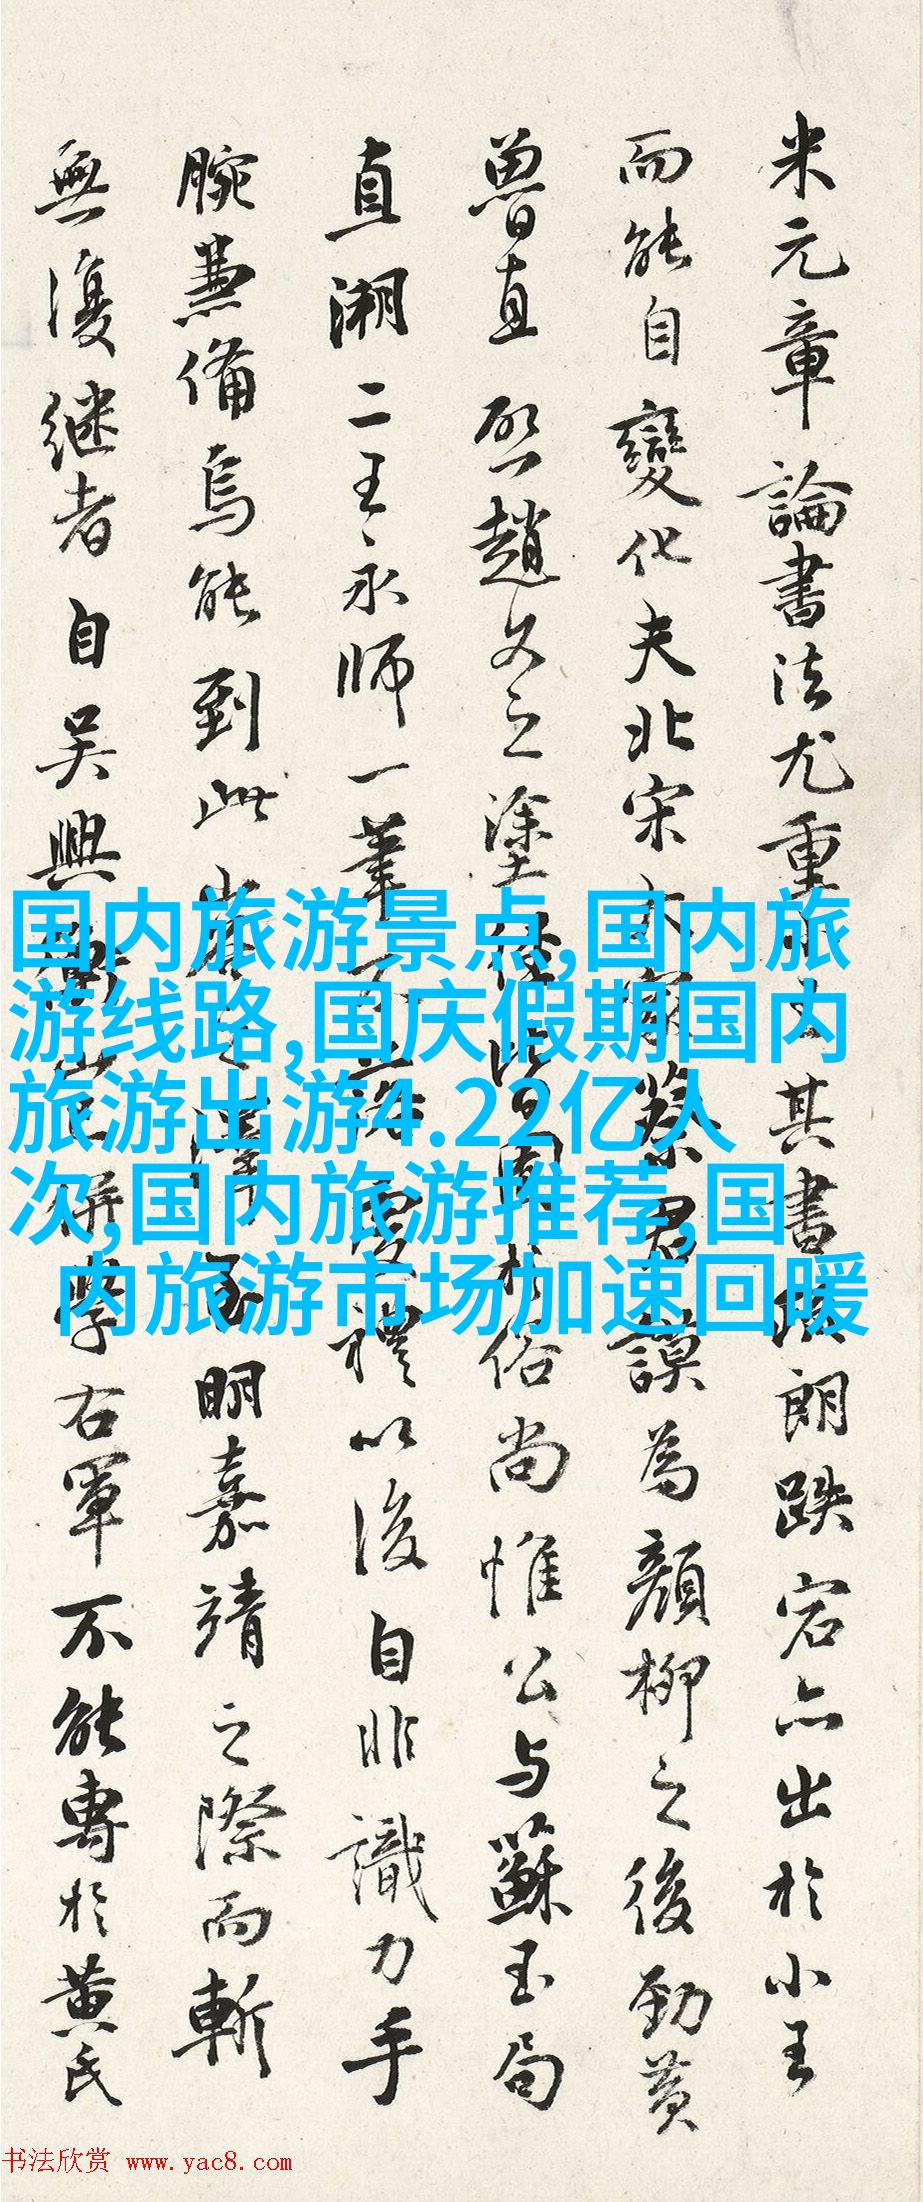 米元章論書法尤重
其書
朗跌宕亦出於小王
而能自變化夫北宋
蔡君謨為顏柳之後勁黃
魯直
趙文之塗
俗尚惟公与蘇玉局
直溯二王永師一筆
以後自非識力手
腕兼備烏能到此
明嘉靖之際而斬
無復继者自吴興
右軍不能專於黄氏
国内旅游景点,国内旅
游线路,国庆假期国内
旅游出游4.22亿人
次,国内旅游推荐,国
内旅游市场加速回暖
书法欣赏 www.yac8.com